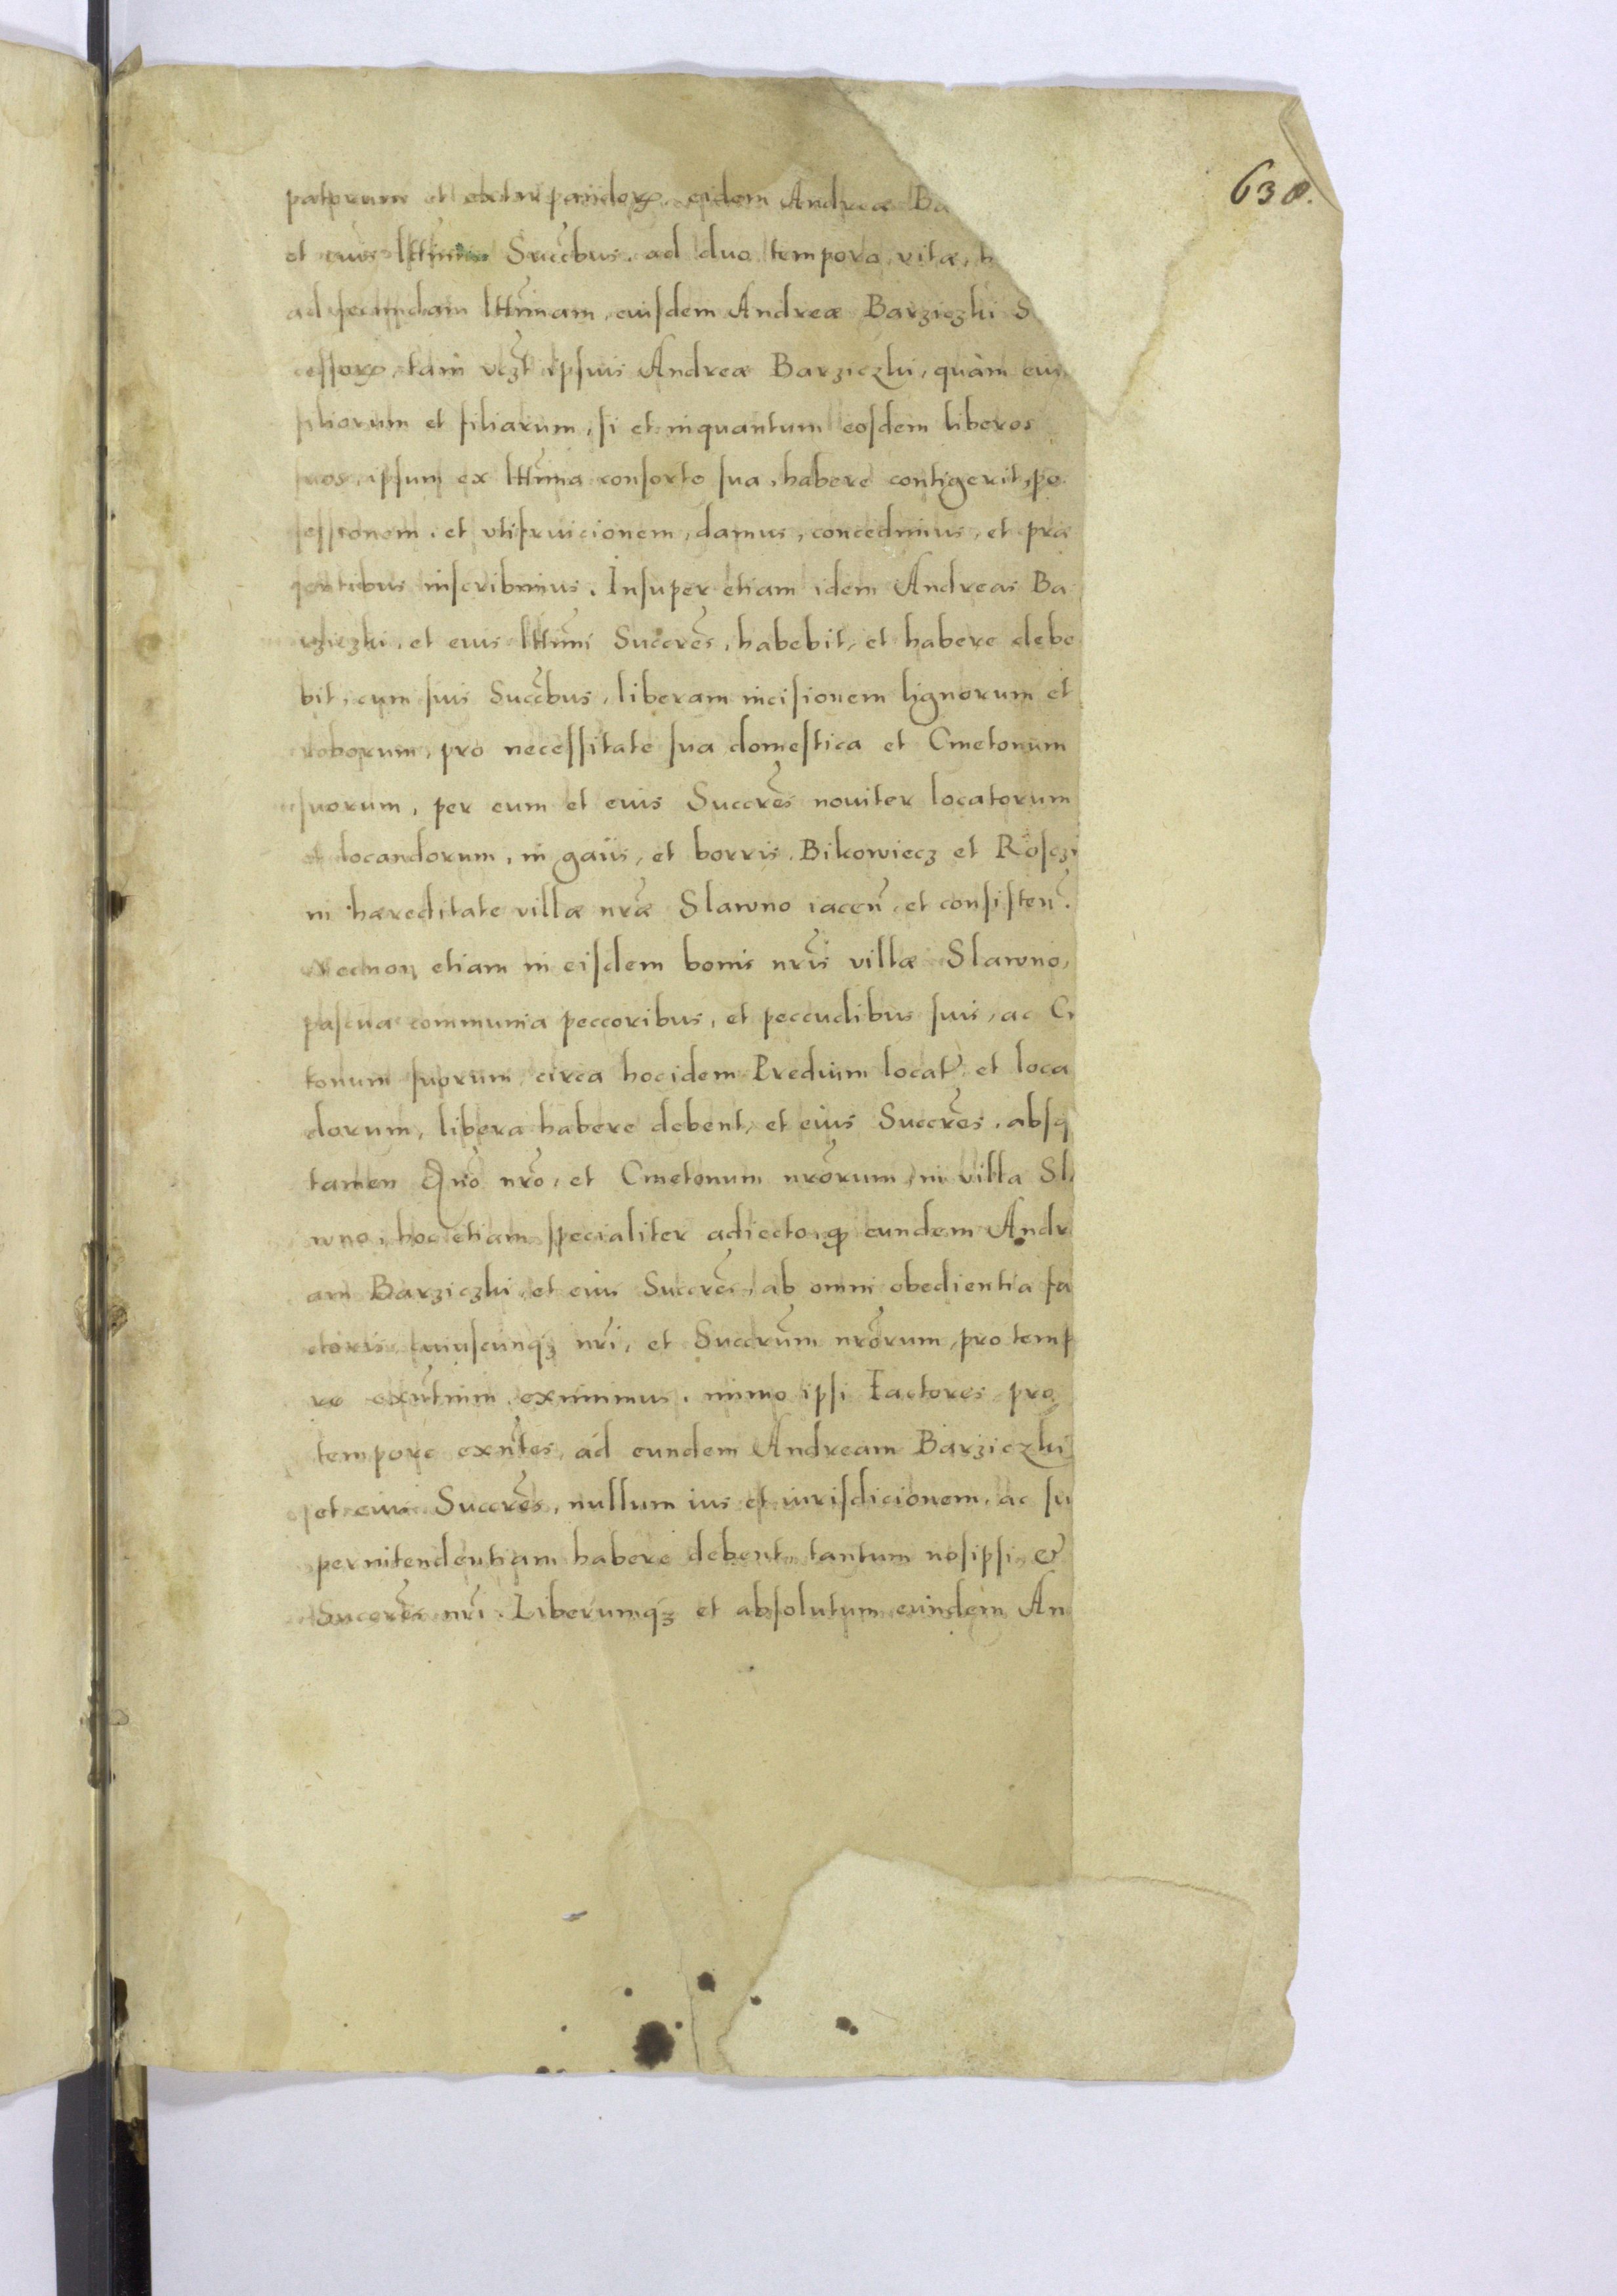 638.
patorum et extirpandorꝝ, eidem Andreæ Ba
et eius lttimis Succ̃bus, ad duo tempora vitæ,
ad secundam lttimam, eiusdem Andreæ Barziczki S
cessorꝝ, tam vczt ipsius Andreæ Barziczki, quàm eiu
filiorum et filiarum, si et inquantum eosdem liberos
suos, ipsum ex lttima consorte sua, habere contigerit, po
sessionem, et vtifruicionem, damus, concedimus, et præ
sentibus inscribimus. Insuper etiam idem Andreas Ba
rziczki, et eius lttimi Succr̃es, habebit, et habere debe
bit, cum suis Succ̃bus, liberam incisionem lignorum et
roborum, pro necessitate sua domestica et Cmetonum
suorum, per eum et eius Succr̃es nouiter locatorum
et locandorum, in gaiis, et borris, Bikowiecz et Rosczi
in hæreditate villæ nr̃æ Slawno iaceñ, et consisteñ.
Necnon etiam in eisdem bonis nr̃is villæ Slawno,
pascua communia peccoribus, et peccudibus suis, ac C
tonum suorum, circa hocidem Predium locat̃, et loca
dorum, libera habere debent, et eius Succr̃es, absq
tamen nr̃o, et Cmetonum nr̃orum, in villa Sla
wno, hoc etiam specialiter adiecto, ꝙ eundem Andr
am Barziczki, et eius Succr̃es, ab omni obedientia fa
ctoris cuiuscunqꝫ nr̃i, et Succr̃um nr̃orum, pro temp
re exñtium, eximimus, immo ipsi Factores pro
tempore exñtes, ad eundem Andream Barziczki
et eius Succr̃es, nullum ius et iurisdicionem, ac su
perintendentiam habere debent, tantum nosipsi, &
Succr̃es nr̃i. Liberumqꝫ et absolutum eundem An